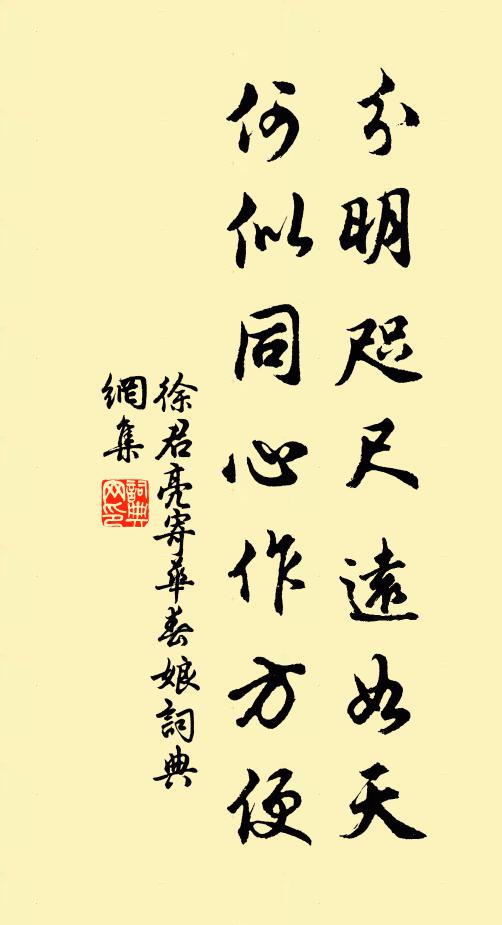 分明咫尺遠如天
何似同心作方便
徐君亮寄華春娘詞典
網集
詞典
網印